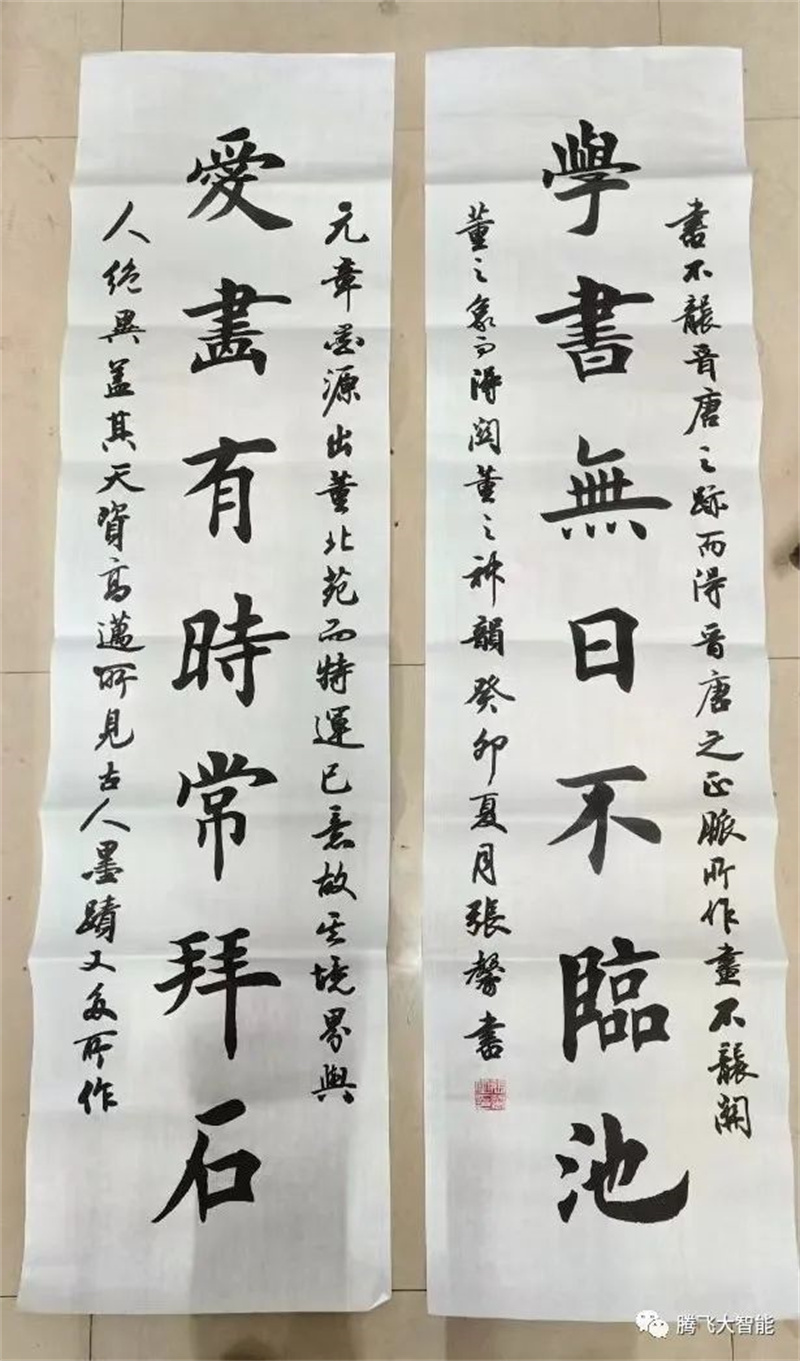 愛畫有時常拜石
元章畫源出董北苑而特運己意故其境界與
人絕異蓋其天資高邁所見古人墨蹟又多所作
學書無日不臨池
書不襲晉唐之跡而得晉唐之正脈所作畫不襲關
董之象而得關董之神韻癸卯夏月張馨書
腾飞大智能